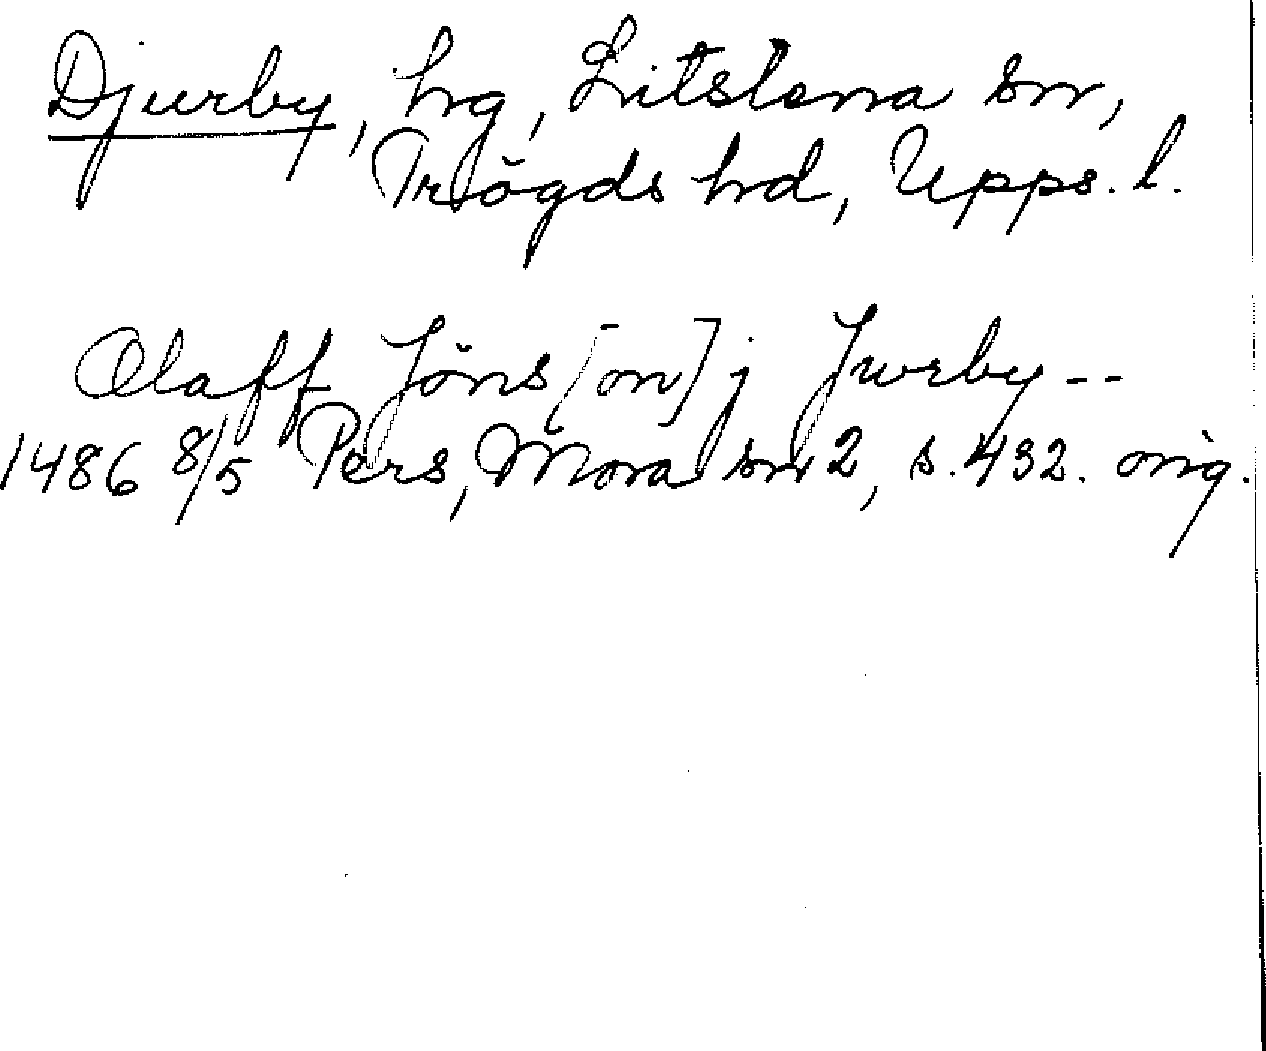 Djurby, hg, Litslena sn,
Trögds hd, Upps. l.
Olaff Jöns[on] j Jwrby --
1486 8/5 Pers, Mora sn 2, s. 432. orig.